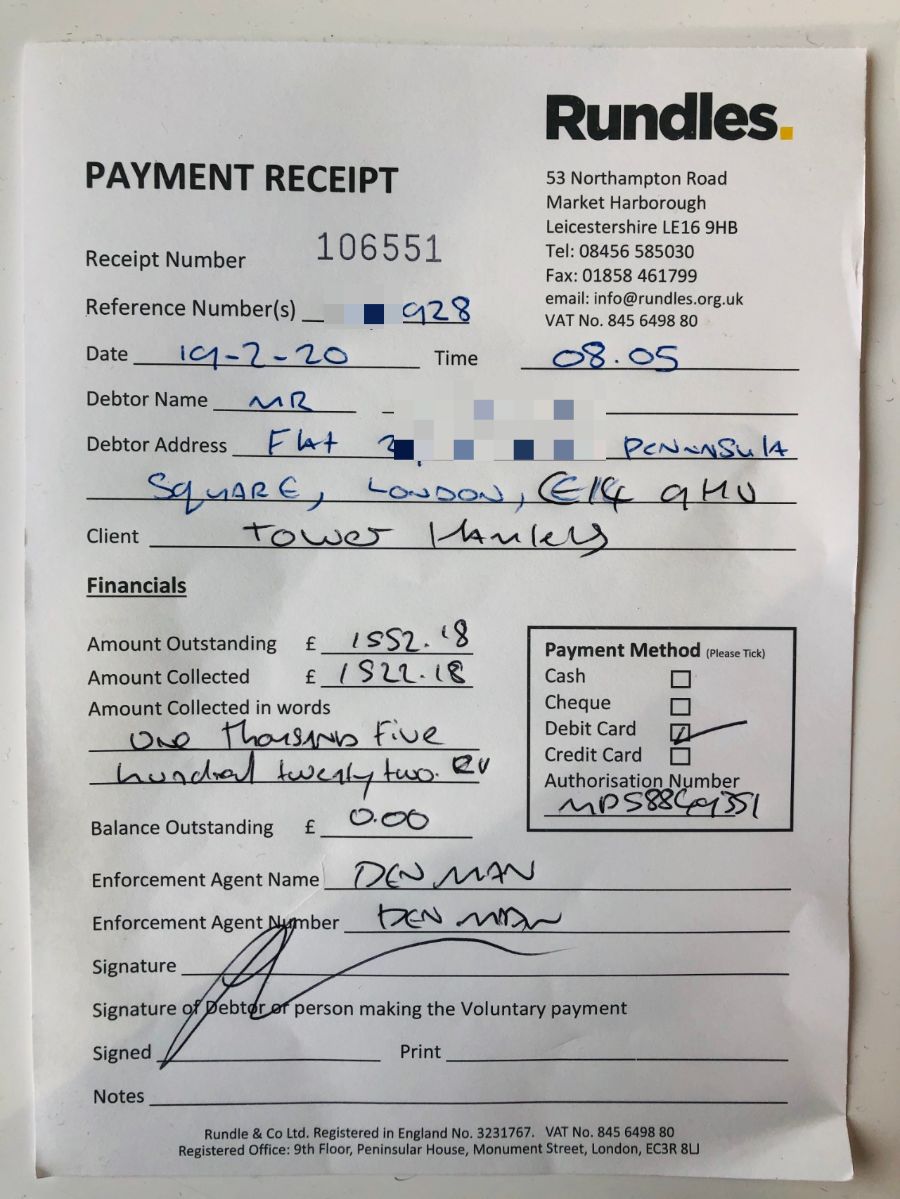 Rundles.
PAYMENT RECEIPT
53 Northampton Road
Market Harborough
Leicestershire LE16 9HB
Tel: 08456 585030
Fax: 01858 461799
email: info@rundles.org.uk
VAT No. 845 6498 80
Receipt Number 106551
Reference Number(s) 928
Date 19-2-20 Time 08.05
Debtor Name MR
Debtor Address Flat 2 PENINSULA
SQUARE, LONDON, E14 9HU
Client Tower Hamlets
Financials
Amount Outstanding £ 1552.18
Amount Collected £ 1522.18
Amount Collected in words
one thousand five
hundred twenty two.
Balance Outstanding £ 0.00
Payment Method (Please Tick)
Cash
Cheque
Debit Card
Credit Card
Authorisation Number
Enforcement Agent Name DENMAN
Enforcement Agent Number DENMAN
Signature
Signature of Debtor or person making the Voluntary payment
Signed Print
Notes
Rundle & Co Ltd. Registered in England No. 3231767. VAT No. 845 6498 80
Registered Office: 9th Floor, Peninsular House, Monument Street, London, EC3R 8LJ